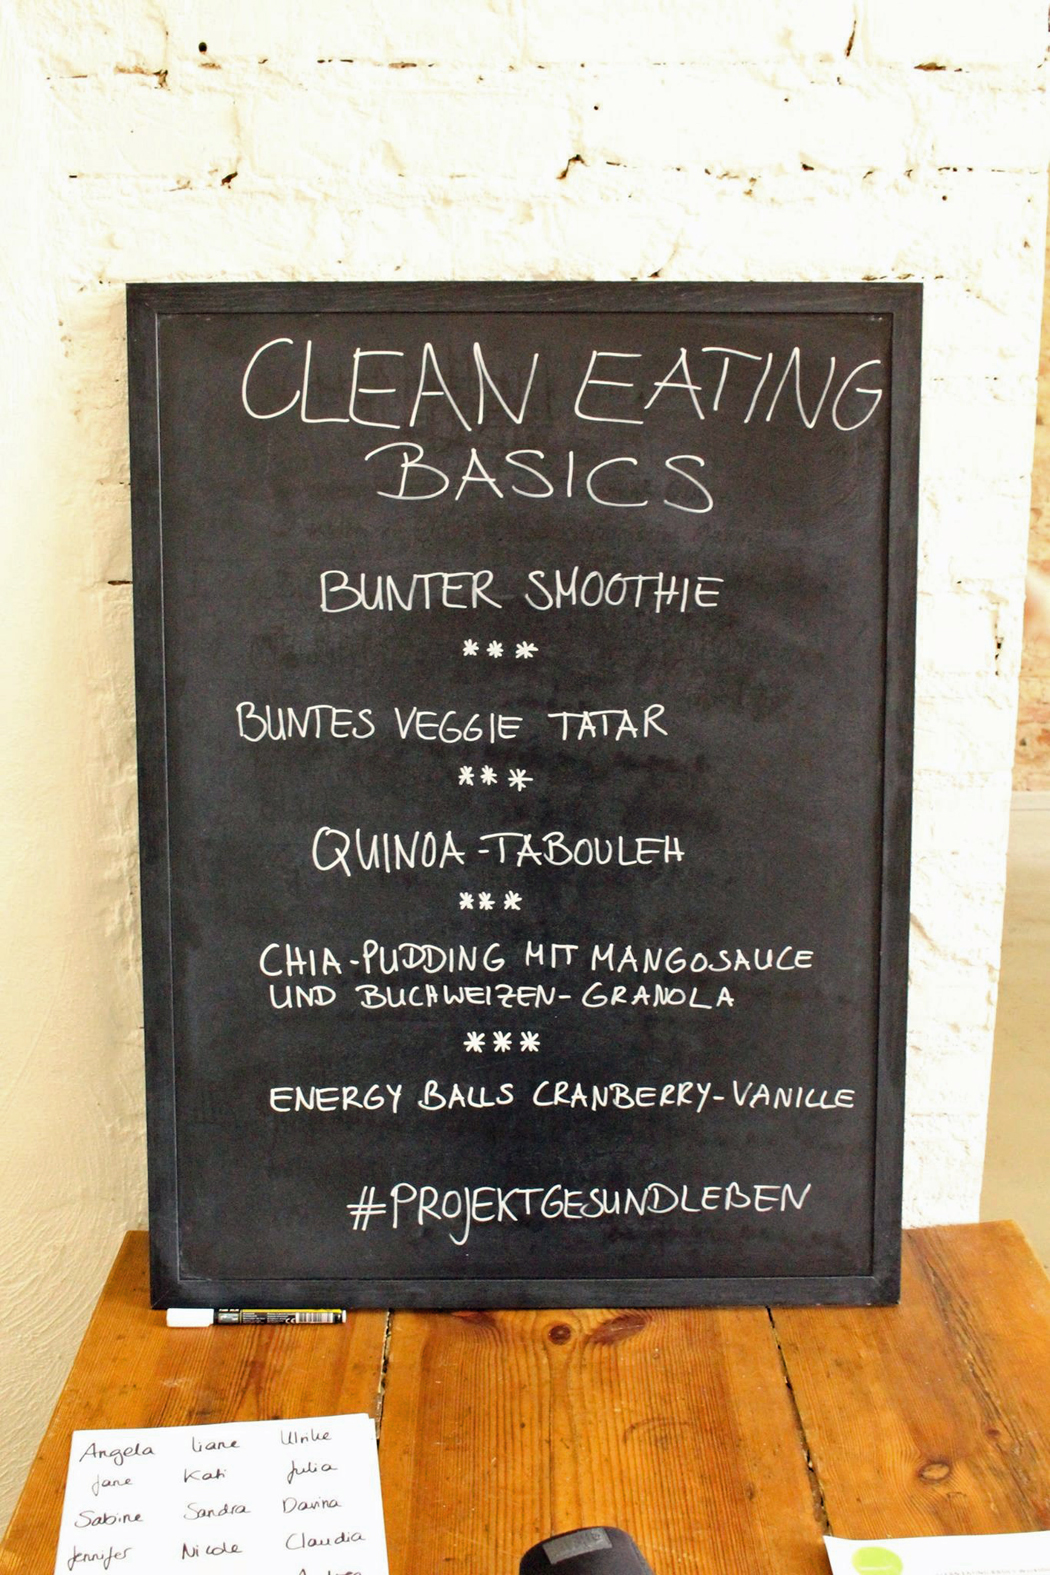 CLEAN EATING
BASICS
BUNTER SMOOTHIE
***
BUNTES VEGGIE TATAR
***
QUINOA-TABOULEH
***
CHIA-PUDDING MIT MANGOSAUCE
UND BUCHWEIZEN-GRANOLA
***
ENERGY BALLS CRANBERRY-VANILLE
#PROJEKTGESUNDLEBEN
Angela Liane Ulrike
Jane Kati Julia
Sabine Sandra Davina
Jennifer Nicole Claudia